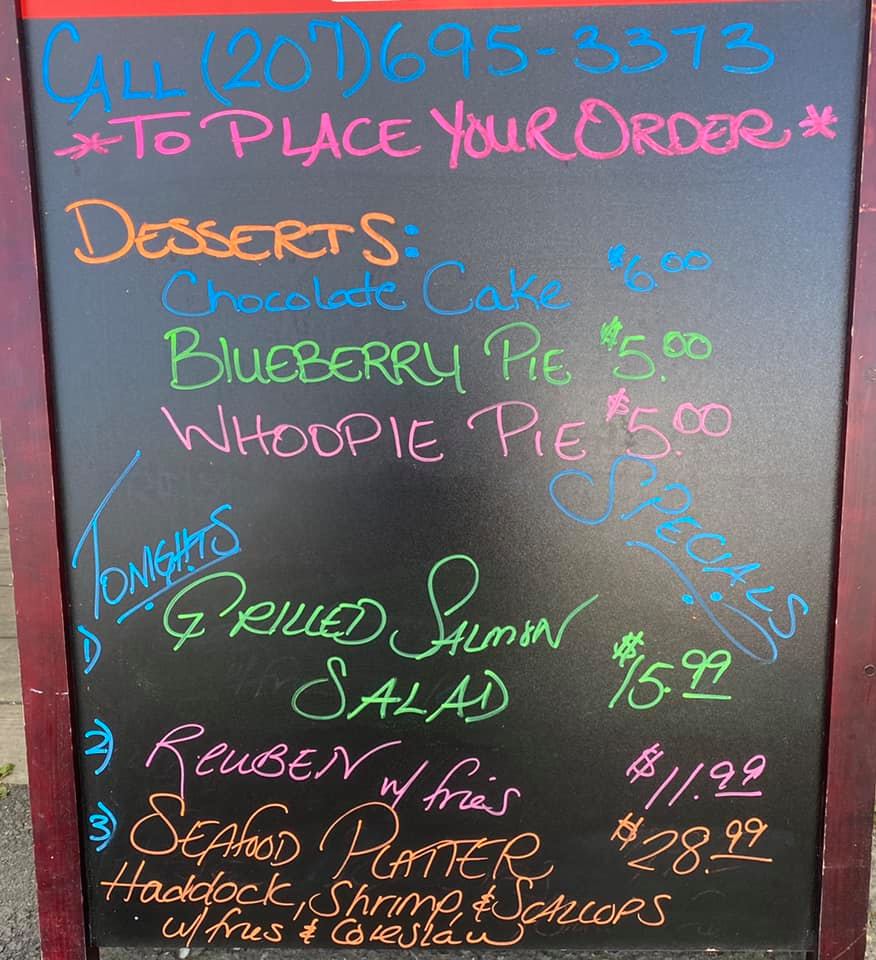 CALL (207) 695-3373
*TO PLACE YOUR ORDER*
DESSERTS:
Chocolate Cake $6.00
BLUEBERRY PIE $5.00
WHOOPIE PIE $5.00
TONIGHTS SPECIALS
1) GRILLED SALMON
SALAD $15.99
2) REUBEN w/ fries $11.99
3) SEAFOOD PLATTER $28.99
Haddock, Shrimp, & SCALLOPS
w/ fries & Coleslaw